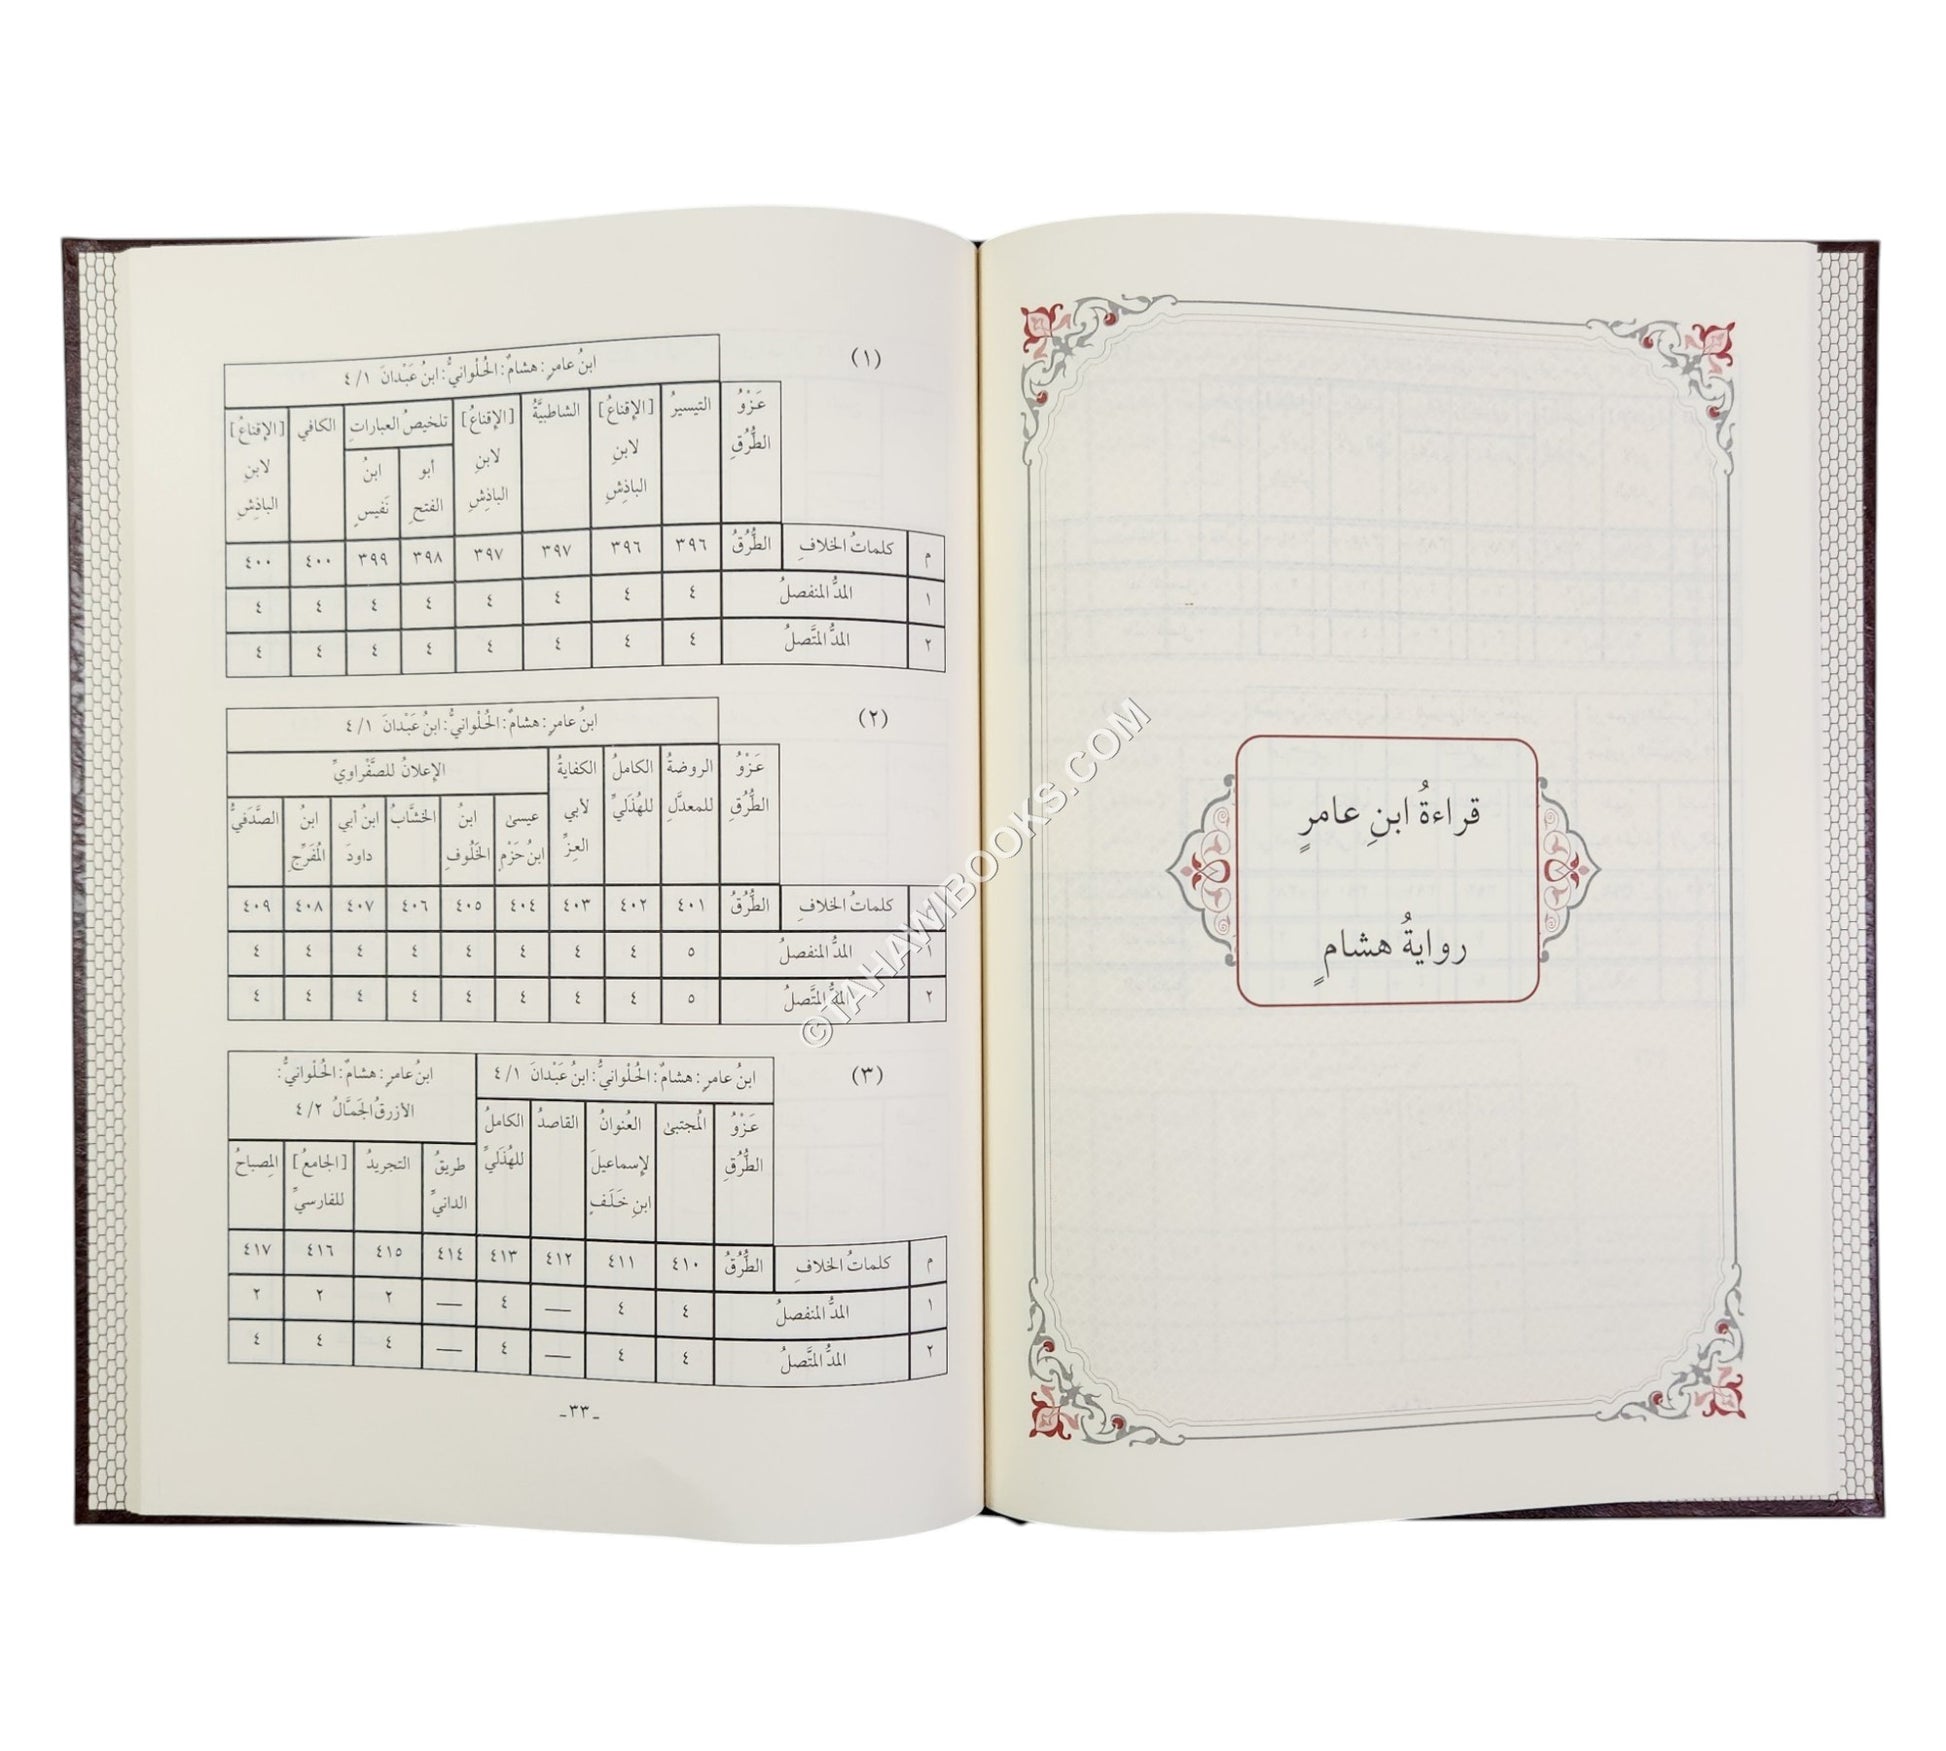 قراءةُ ابنِ عامرٍ
روايةُ هشامٍ
(١)
ابنُ عامرٍ: هشامٌ: الحُلْوانيُّ: ابنُ عَبْدانَ ٤/١
عَزْوُ الطُّرُقِ | التيسيرُ | [الإقناعُ] لابنِ الباذِشِ | الشاطبيَّةُ | [الإقناعُ] لابنِ الباذِشِ | تلخيصُ العباراتِ | الكافي | [الإقناعُ] لابنِ الباذِشِ
أبو الفتحِ | ابنُ نَفيسٍ
م | كلماتُ الخلافِ | الطُّرُقُ | ٣٩٦ | ٣٩٦ | ٣٩٧ | ٣٩٧ | ٣٩٨ | ٣٩٩ | ٤٠٠ | ٤٠٠
١ | المدُّ المنفصلُ | ٤ | ٤ | ٤ | ٤ | ٤ | ٤ | ٤ | ٤
٢ | المدُّ المتَّصلُ | ٤ | ٤ | ٤ | ٤ | ٤ | ٤ | ٤ | ٤
(٢)
ابنُ عامرٍ: هشامٌ: الحُلْوانيُّ: ابنُ عَبْدانَ ٤/١
عَزْوُ الطُّرُقِ | الروضةُ للمعدَّلِ | الكاملُ للهُذَليِّ | الكفايةُ لأبي العِزِّ | الإعلانُ للصَّفْراويِّ
عيسىٰ ابنُ حَزْمٍ | ابنُ الخَلُوفِ | الخشَّابُ | ابنُ أبي داودَ | ابنُ المُفَرِّجِ | الصَّدَفيُّ
م | كلماتُ الخلافِ | الطُّرُقُ | ٤٠١ | ٤٠٢ | ٤٠٣ | ٤٠٤ | ٤٠٥ | ٤٠٦ | ٤٠٧ | ٤٠٨ | ٤٠٩
١ | المدُّ المنفصلُ | ٥ | ٤ | ٤ | ٤ | ٤ | ٤ | ٤ | ٤ | ٤
٢ | المدُّ المتَّصلُ | ٥ | ٤ | ٤ | ٤ | ٤ | ٤ | ٤ | ٤ | ٤
(٣)
ابنُ عامرٍ: هشامٌ: الحُلْوانيُّ: ابنُ عَبْدانَ ٤/١ | ابنُ عامرٍ: هشامٌ: الحُلْوانيُّ:
الأزرقُ الجَمَّالُ ٤/٢
عَزْوُ الطُّرُقِ | المُجتبىٰ | العُنوانُ لإسماعيلَ ابنِ خَلَفٍ | القاصدُ | الكاملُ للهُذَليِّ | طريقُ الدانيِّ | التجريدُ | [الجامعُ] للفارسيِّ | المِصباحُ
م | كلماتُ الخلافِ | الطُّرُقُ | ٤١٠ | ٤١١ | ٤١٢ | ٤١٣ | ٤١٤ | ٤١٥ | ٤١٦ | ٤١٧
١ | المدُّ المنفصلُ | ٤ | ٤ | — | ٤ | — | ٢ | ٢ | ٢
٢ | المدُّ المتَّصلُ | ٤ | ٤ | — | ٤ | — | ٤ | ٤ | ٤
-٣٣-
©TAHAWIBOOKS.COM